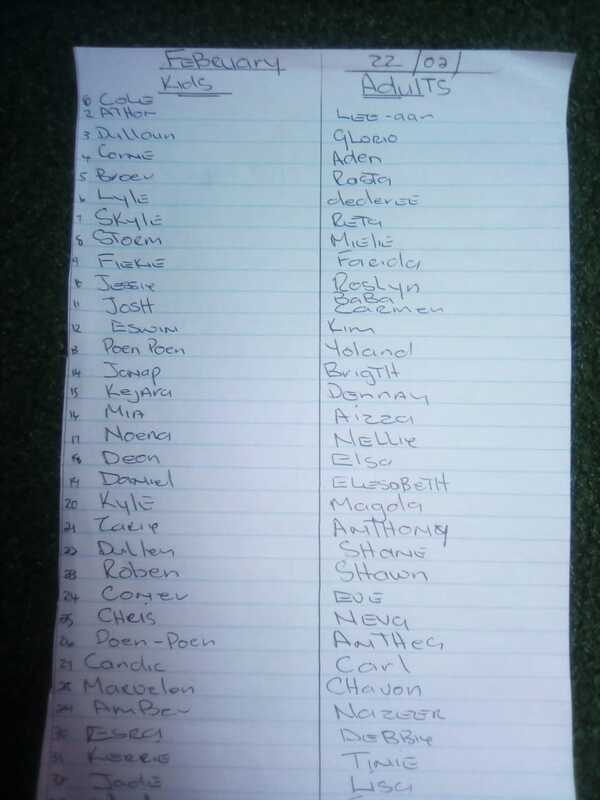 February 22/02/
Kids Adults
1 Cole Lee-aan
2 Athon Glorio
3 Dulloun Aden
4 Connie Rasta
5 dederee
6 Lyle Reta
7 Skyle Mielie
8 Storm Farida
9 Fiekie Roslyn
10 Jessie BaBa
11 Josh Carmen
12 Eswin Kim
13 Poen Poen Yoland
14 Janap Brigth
15 Kejara Donnay
16 Mia Aizza
17 Noena Nellie
18 Deon Elsa
19 Daniel Elesobeth
20 Kyle Magda
21 Anthony
22 Dullen Shane
23 Roben Shawn
24 Eve
25 Chris Neva
26 Doen-Poen Anthea
27 Candic Carl
28 Marvelon Chavon
29 Amber Nazeer
30 Esra Debbie
31 Kerrie Tinie
32 Jade Lisa